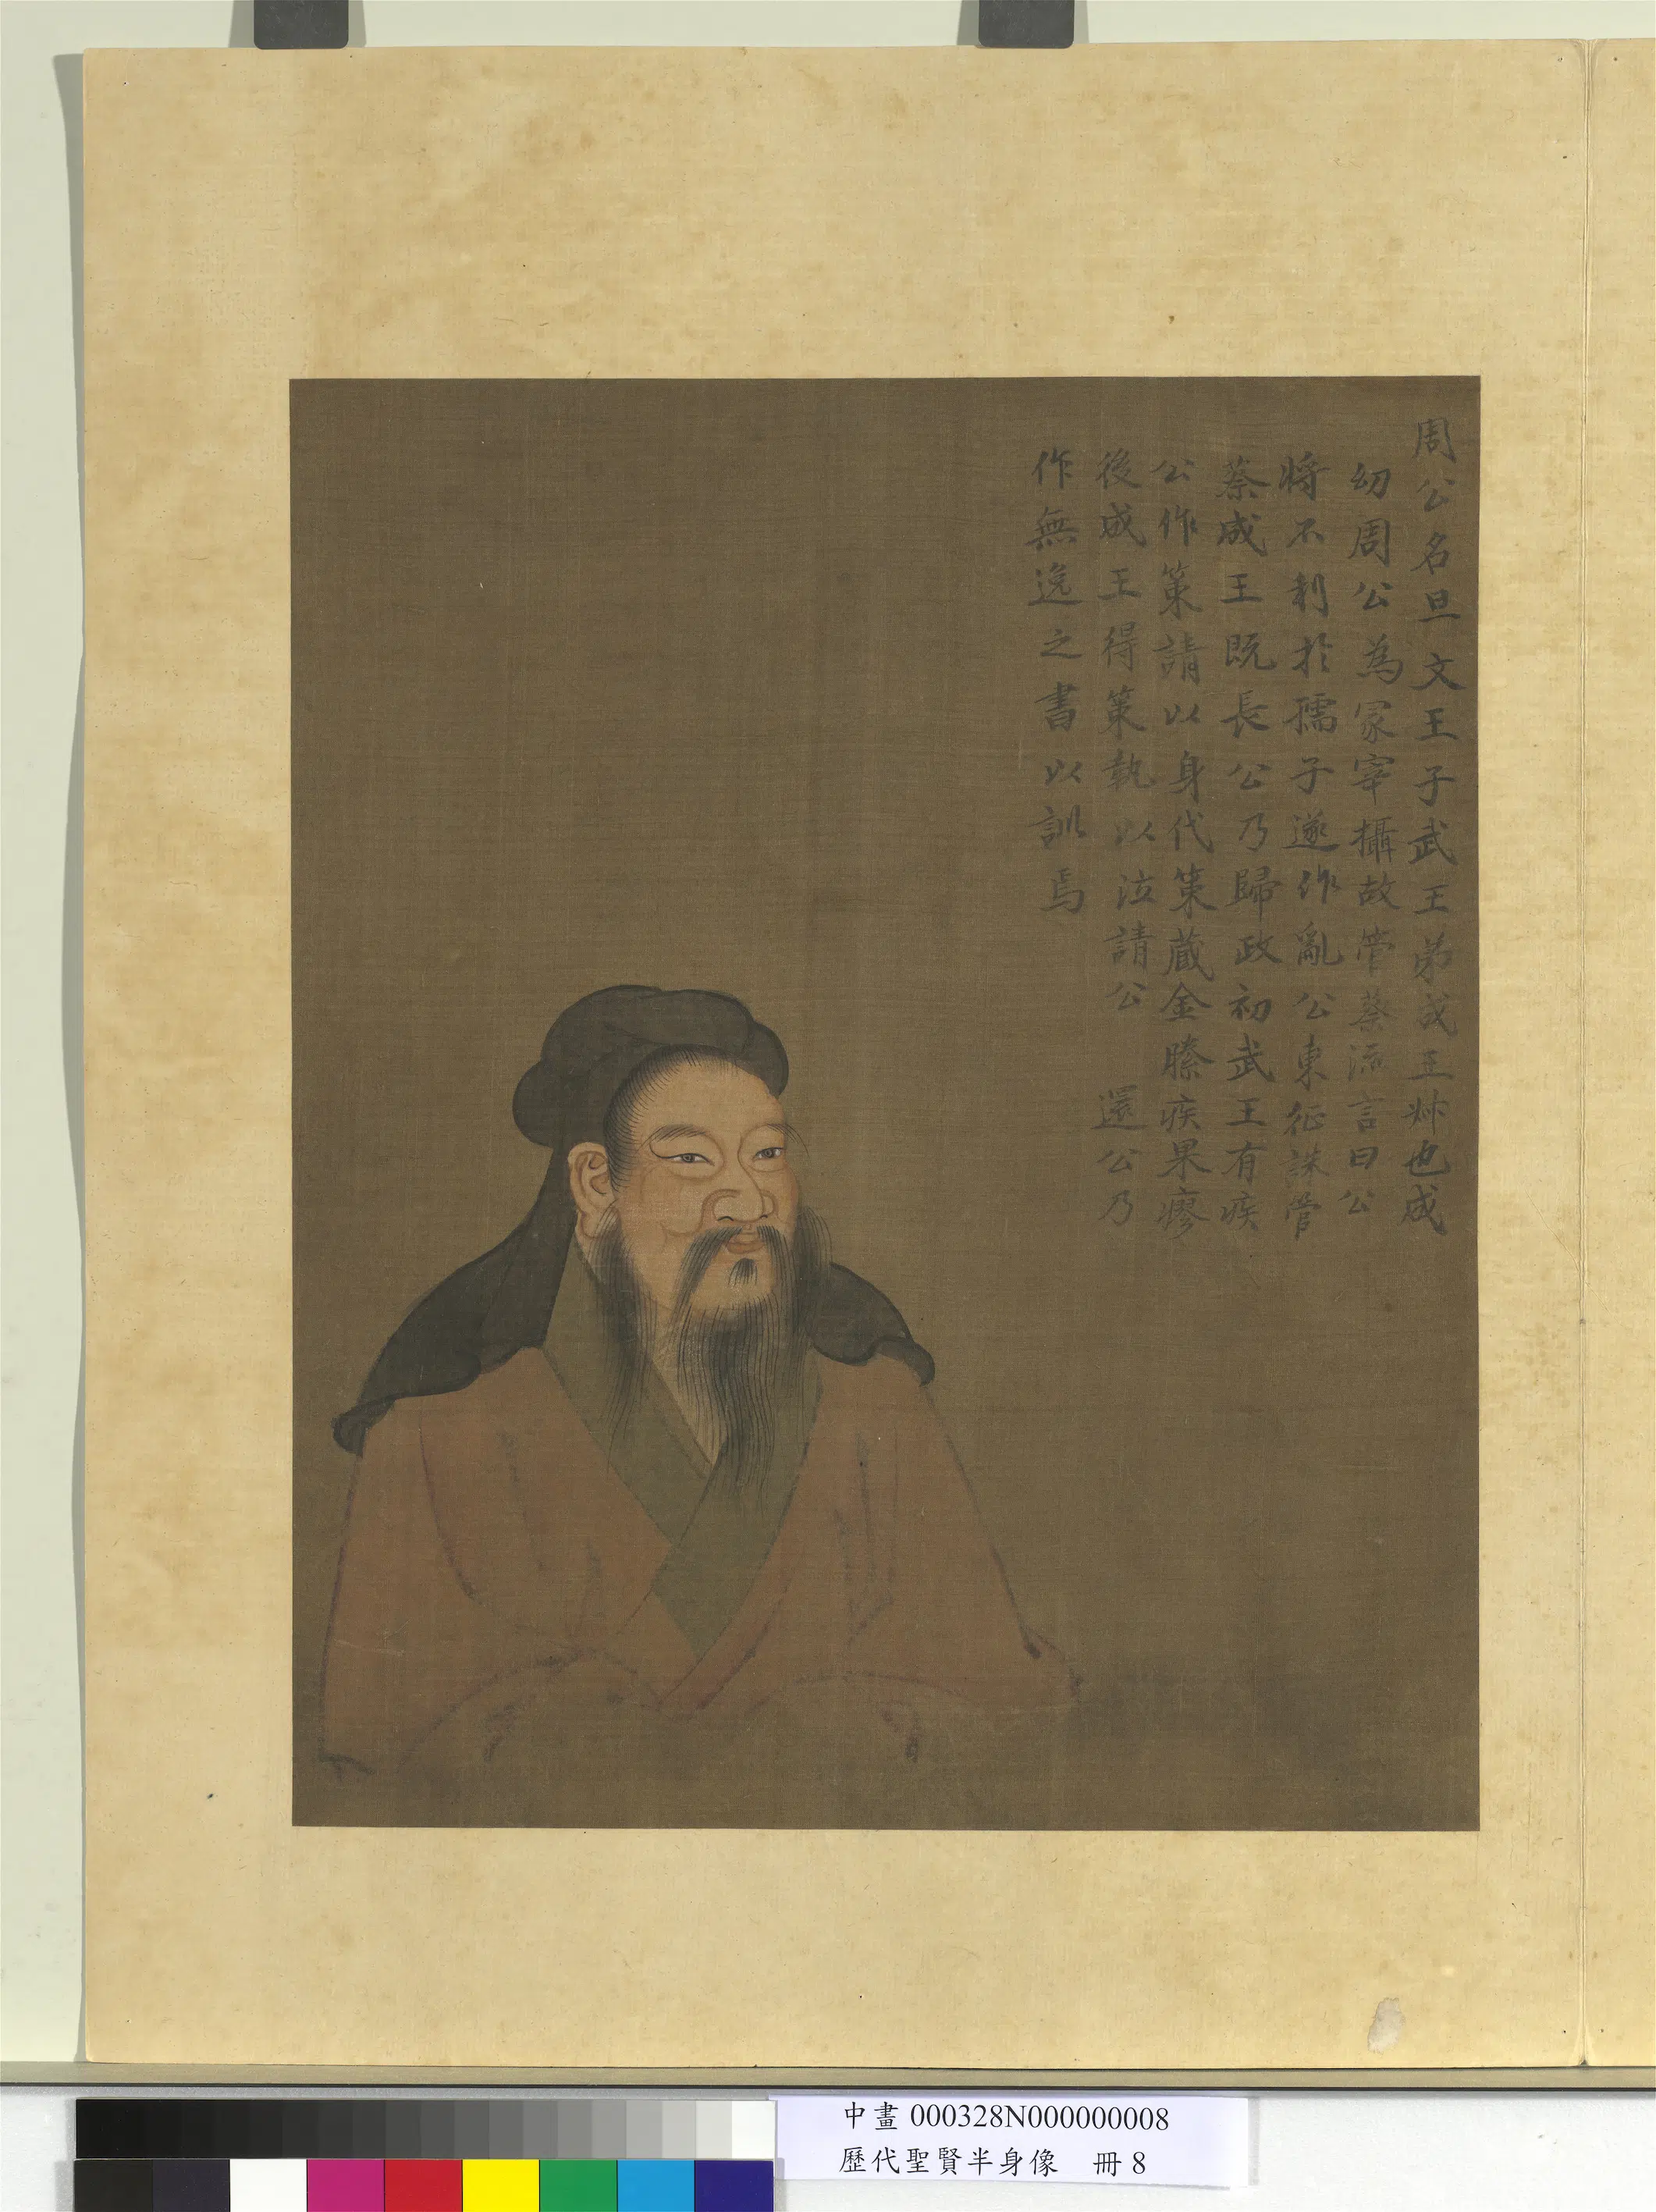 周公名旦文王子武王弟成王叔也成
幼周公為冢宰攝故管蔡流言曰公
將不利於孺子遂作亂公東征誅管
蔡成王既長公乃歸政初武王有疾
公作策請以身代策蔵金縢疾果瘳
後成王得策執以泣請公還公乃
作無逸之書以訓焉
中畫 000328N000000008
歷代聖賢半身像 冊 8